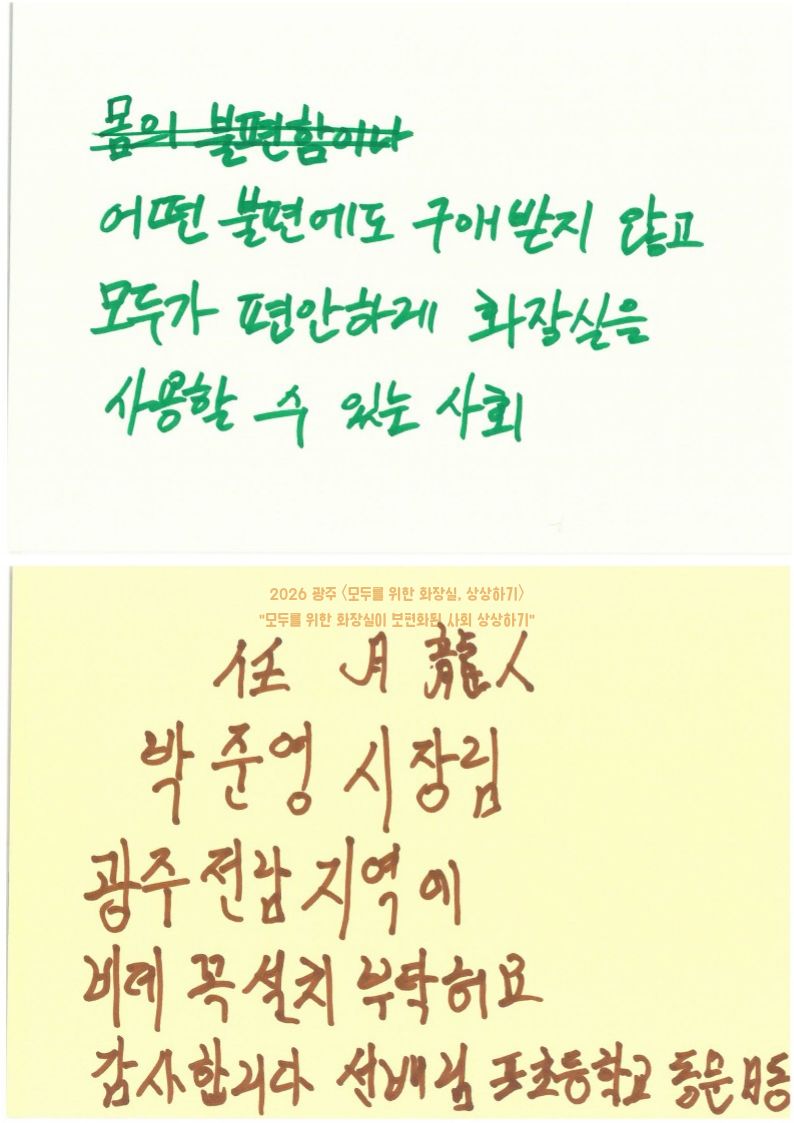 몸의 불편함이나
어떤 불편에도 구애받지 않고
모두가 편안하게 화장실을
사용할 수 있는 사회
2026 광주 〈모두를 위한 화장실, 상상하기〉
"모두를 위한 화장실이 보편화된 사회 상상하기"
任 月 龍 人
박 준영 시장림
광주 전남 지역에
비데 꼭 설치 부탁허요
감사합니다 선배림 초등학교 동문